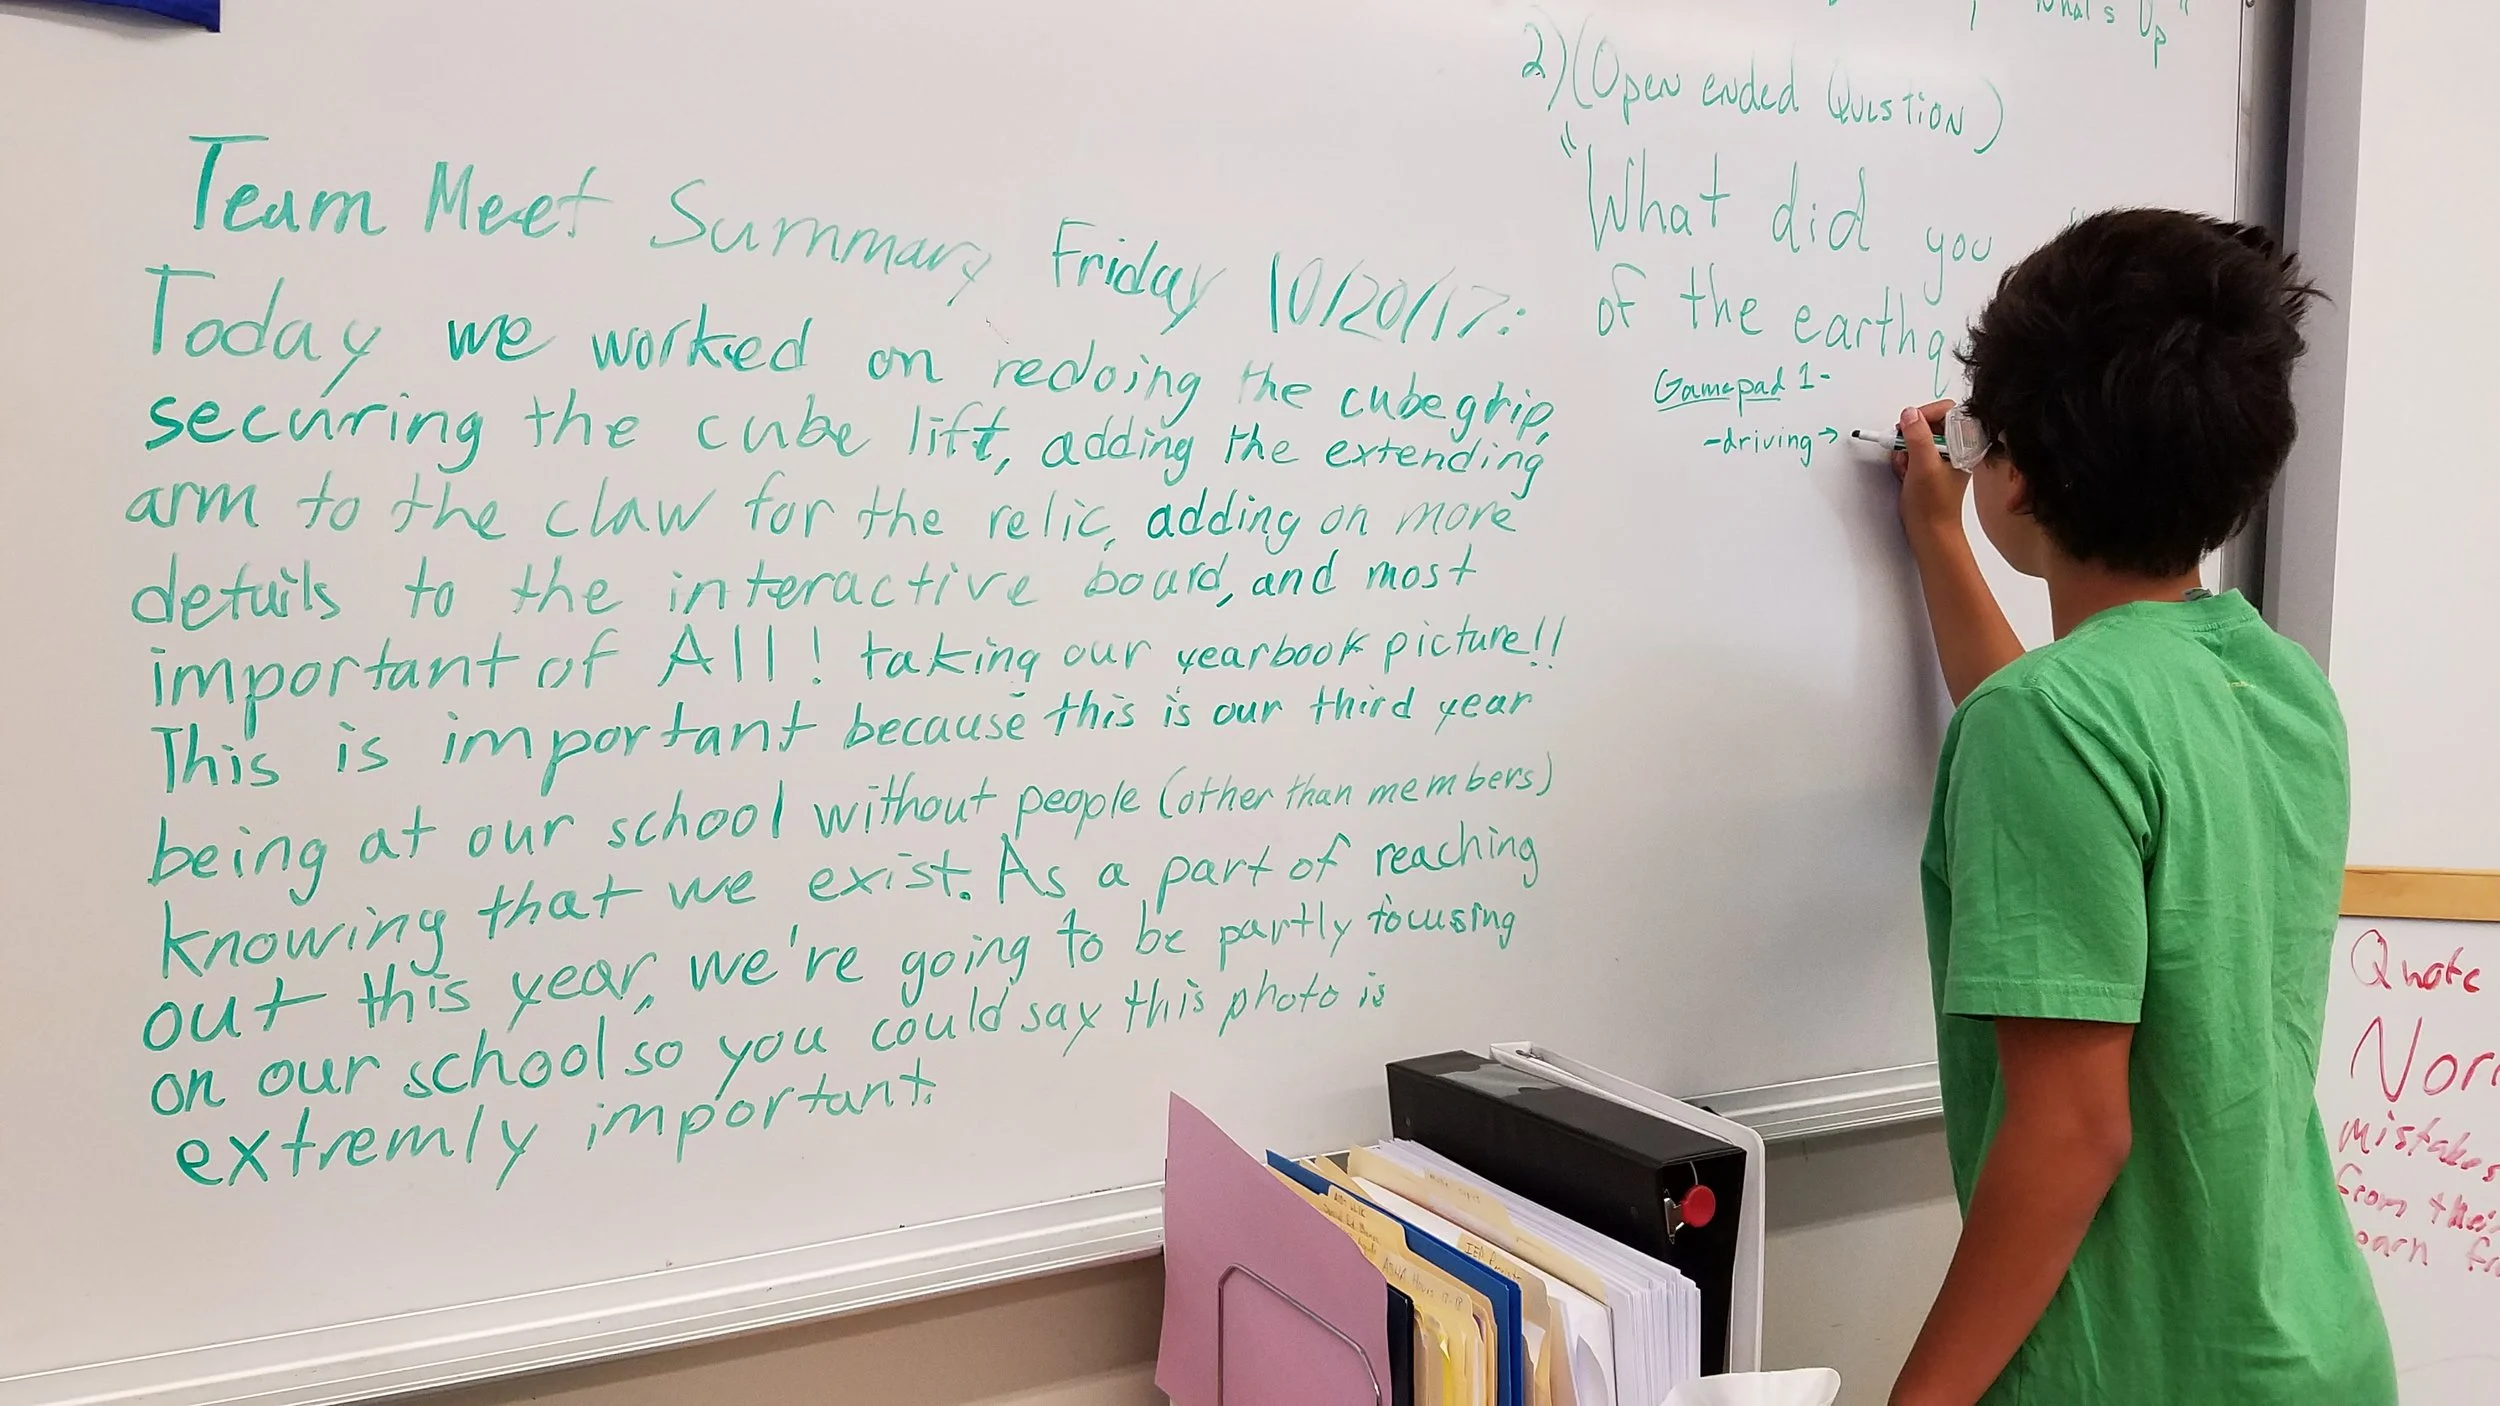 Team Meet Summary Friday 10/20/17:
Today we worked on redoing the cubegrip,
securing the cube lift, adding the extending
arm to the claw for the relic, adding on more
details to the interactive board, and most
important of All! taking our yearbook picture!!
This is important because this is our third year
being at our school without people (other than members)
knowing that we exist. As a part of reaching
out this year, we're going to be partly focusing
on our school so you could say this photo is
extremly important.
What's Up"
2) (Open ended Question)
"What did you
of the
Gamepad 1-
-driving →
Quote
mistakes
from